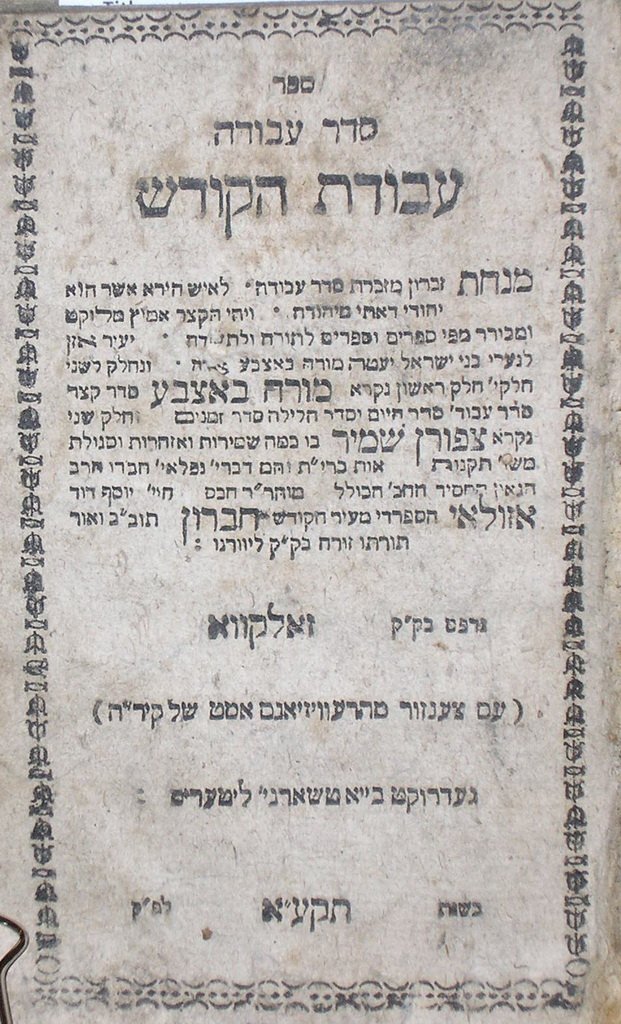 ספר
סדר עבודה
עבודת הקודש
מנחת זכרון מזכרת סדר עבודה · לאיש הירא אשר הוא
יהודי דאתי מיהודה · ויהי הקצר אמיץ מלוקט
ומבורר מפי ספרים וסופרים לתורה יעיר אזן
לנערי בני ישראל יעטה מורה באצבע ונחלק לשני
חלקי׳ חלק ראשון נקרא מורה באצבע סדר קצר
סדר עבוד׳ סדר היום וסדר הלילה סדר זמנים חלק שני
נקרא צפורן שמיר בו כמה שמירות ואזהרות וסגולת
תקנות אות ברי״ת והם דברי׳ נפלאי׳ חברו הרב
הגאון החסיד החכ׳ הכולל מוהר״ר חכם חיי׳ יוסף דוד
אזולאי הספרדי מעיר הקודש חברון תוב״ב ואור
תורתו זורח בק״ק ליוורנו :
נדפס בק״ק זאלקווא
( עם צענזור מהרעוויזיאנס אמט של קיר״ה )
געדרוקט בייא טשארני׳ ליטעריס
בשנת תקע״א לפ״ק